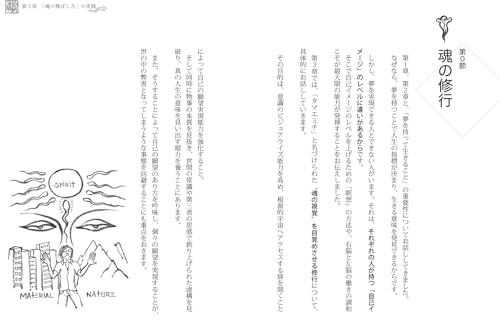 第3章 「魂の飛ばし方」の実践
第0節
魂の修行
第1章、第2章と、「夢を持って生きること」の重要性についてお話ししてきました。
なぜなら、夢を持つことで人生の指標が決まり、生きる意味を発見できるからです。
しかし、夢を実現できる人とできない人がいます。それは、それぞれの人が持つ「自己イ
メージ」のレベルに違いがあるからです。
そこで自己イメージのレベルを上げるための「瞑想」の方法や、右脳と左脳の働きの調和
こそが最大限の能力が発揮することをお伝えしました。
第3章では、「タマエミチ」と名づけられた“魂の視覚”を目覚めさせる修行について、
具体的にお話ししていきます。
その目的は、意識のビジュアライズ能力を高め、根源的宇宙へアクセスする扉を開くこと
によって自己の願望実現能力を強化すること。
そして同時に物事の本質を見抜き、世間の常識や第三者の思惑で創り上げられた虚構を見
破り、真の人生の意味を見い出す能力を養うことにあります。
また、そうすることによって自己の願望のあり方を吟味し、個々の願望を実現することが、
世の中の弊害となってしまうような事態を回避することにも重点をおきます。
SPIRIT
MATERIAL
NATURE